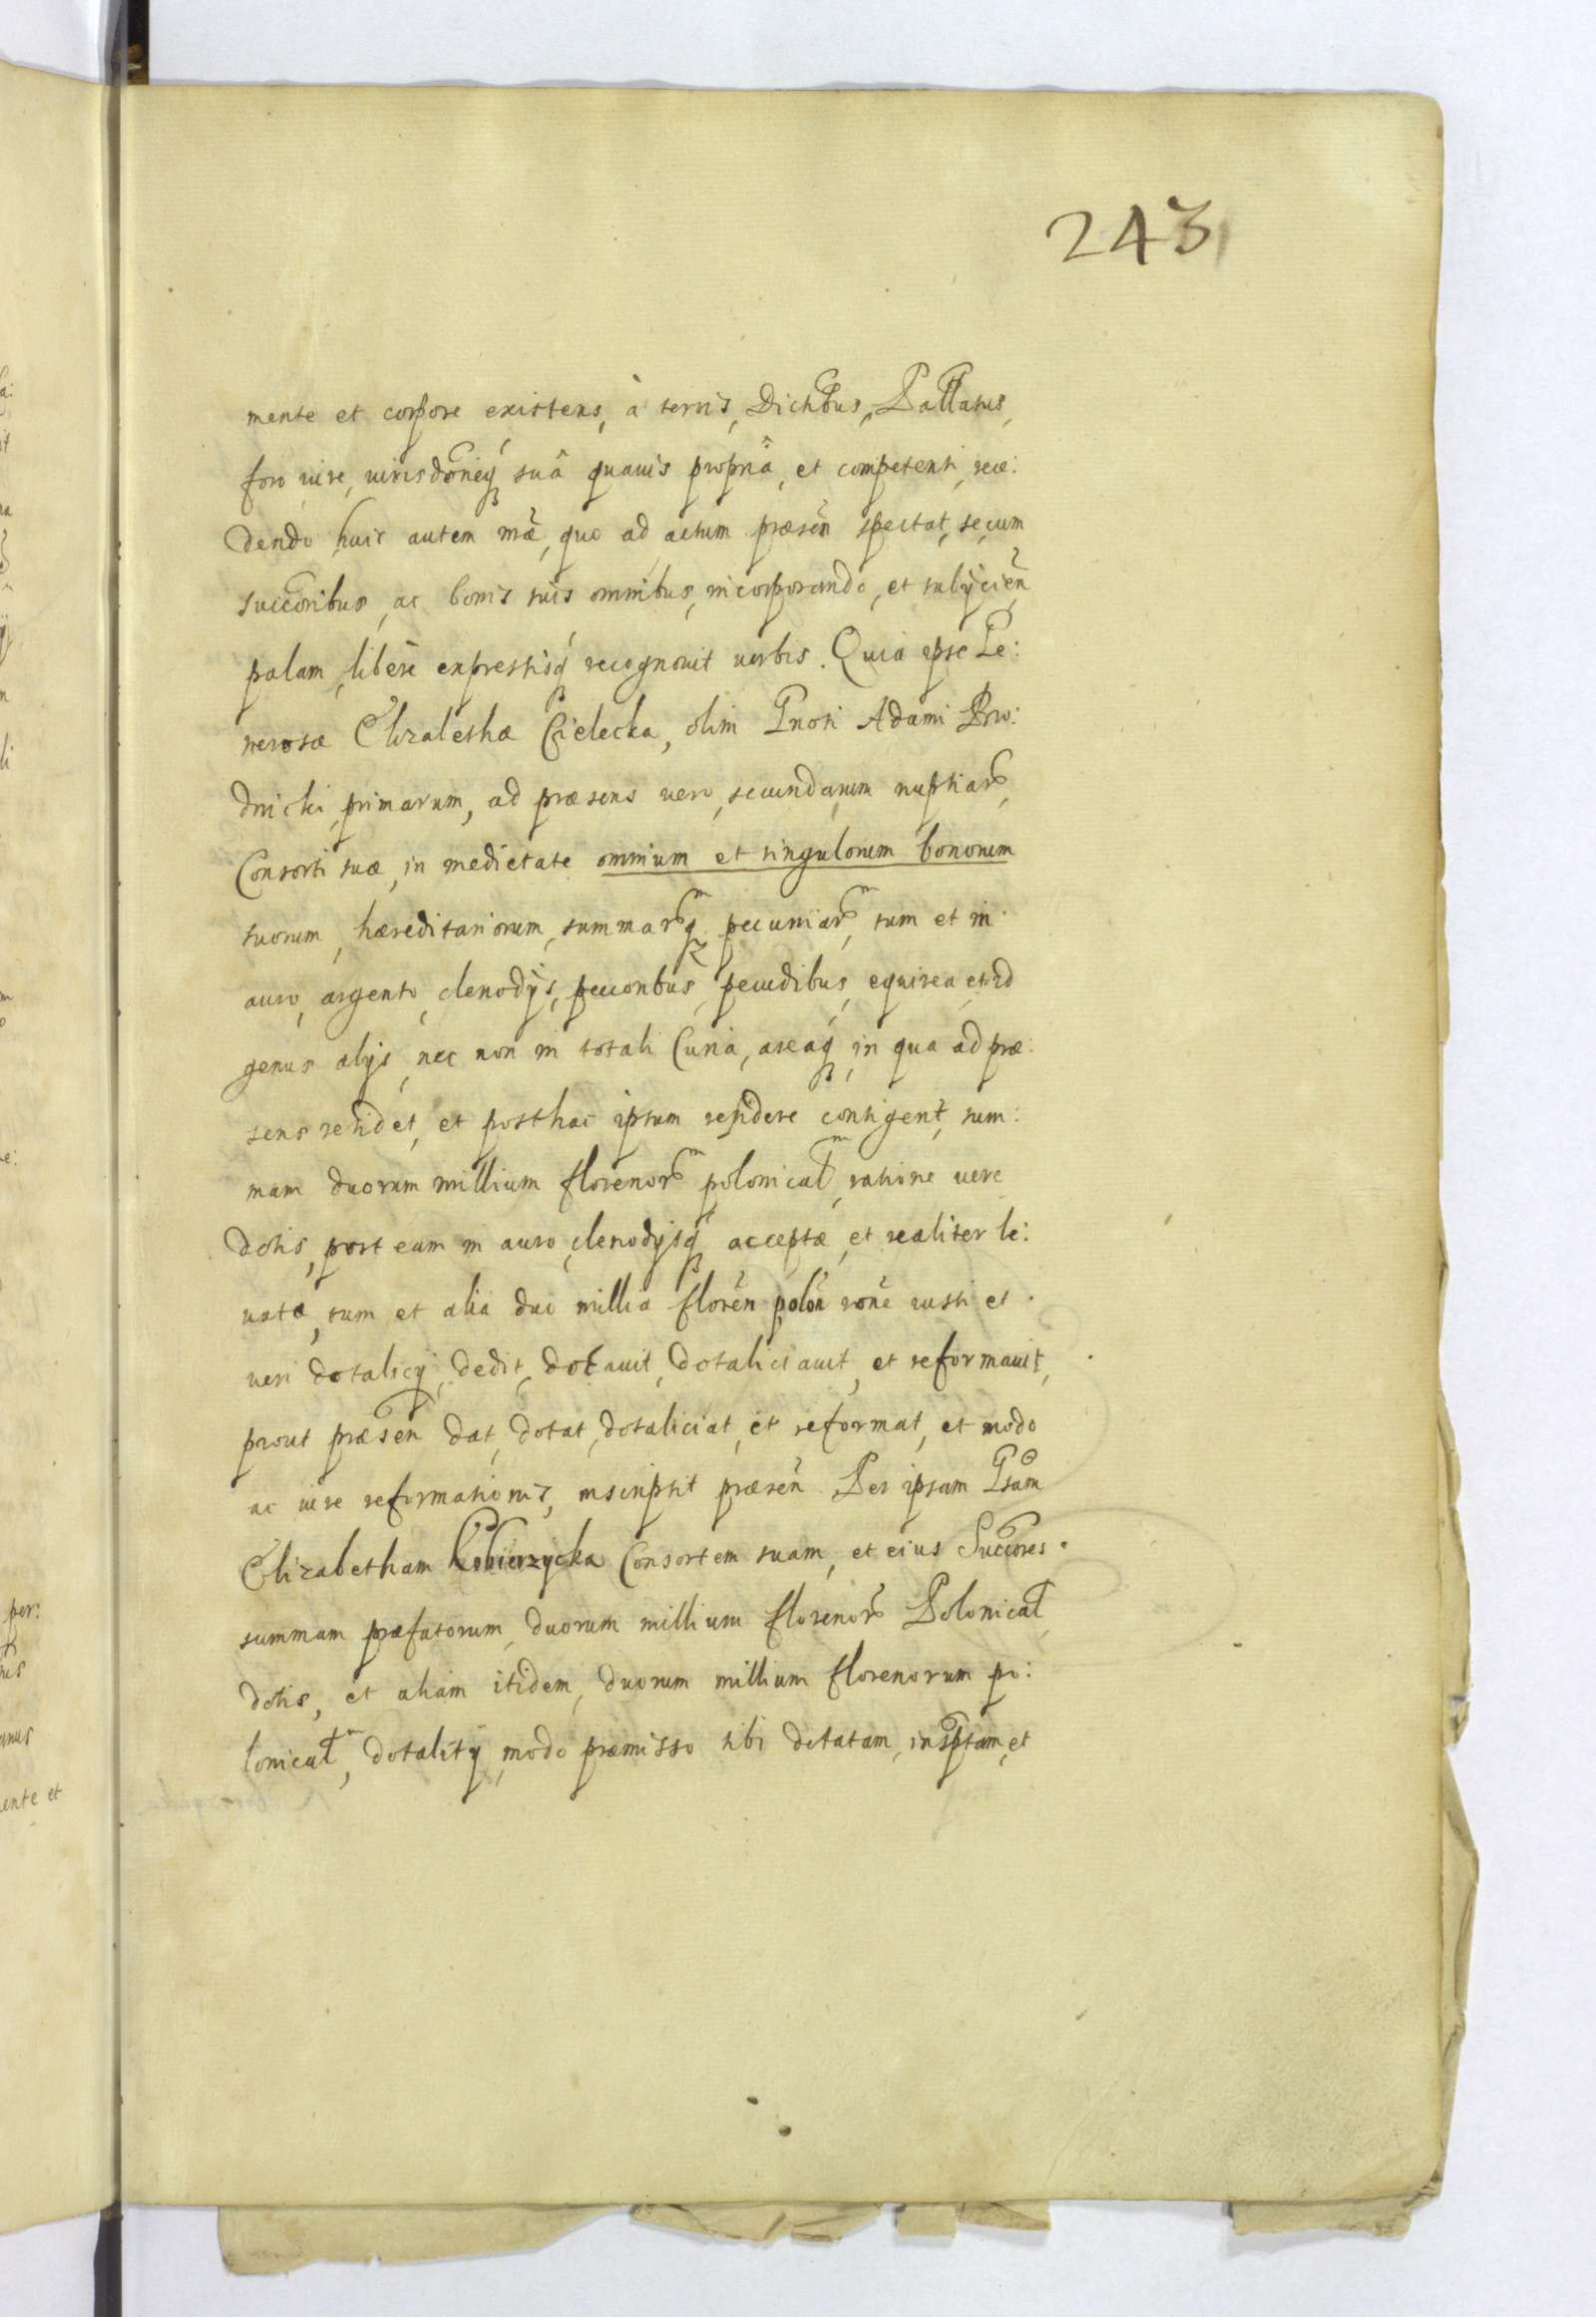 243
mente et corpore existens, à terris, Dichbus, Pallatus,
foro iure, iurisdoneq suâ quauis propriâ, et competenti, rece:
dendo, huic autem mae, quo ad actum praesen spectat, secum
succoribus, ac bonis suis omnibus, incorporando, et subijcien
palam, libere expressisq recognouit uerbis. Quia ipse Ge:
nerosae Elizabethae Cielecka, olim Gnosi Adami Bro:
dnicki, primarum, ad praesens vero, secundarum nuptiar,
Consorti suae, in medietate omnium et singulorum bonorum
suorum, haereditariorum, summarq pecuniar, tum et in
auro, argento, clenodijs, peccoribus, pecudibus, equirea, et id
genus alijs, nec non in totali Curia, areaq, in qua ad prae:
sens residet, et posthac ipsum residere contigerit, sum:
mam duorum millium florenor polonical, ratione vere
dotis, post eam in auro, clenodijsq acceptae, et realiter le:
uatae, tum et alia duo millia floren polon rone iusti et
ueri dotalicij, dedit, dotauit, dotaliciauit, et reformauit,
prout praesen dat, dotat, dotaliciat, et reformat, et modo
ac iure reformationis, inscripsit praesen. Per ipsam Gsam
Elizabetham Kobierzycka Consortem suam, et eius Succores
summam praefatorum, duorum millium florenor Polonical
dotis, et aliam itidem, duorum millium florenorum po:
lonical, dotalitij, modo praemisso sibi dotatam, insptam, et